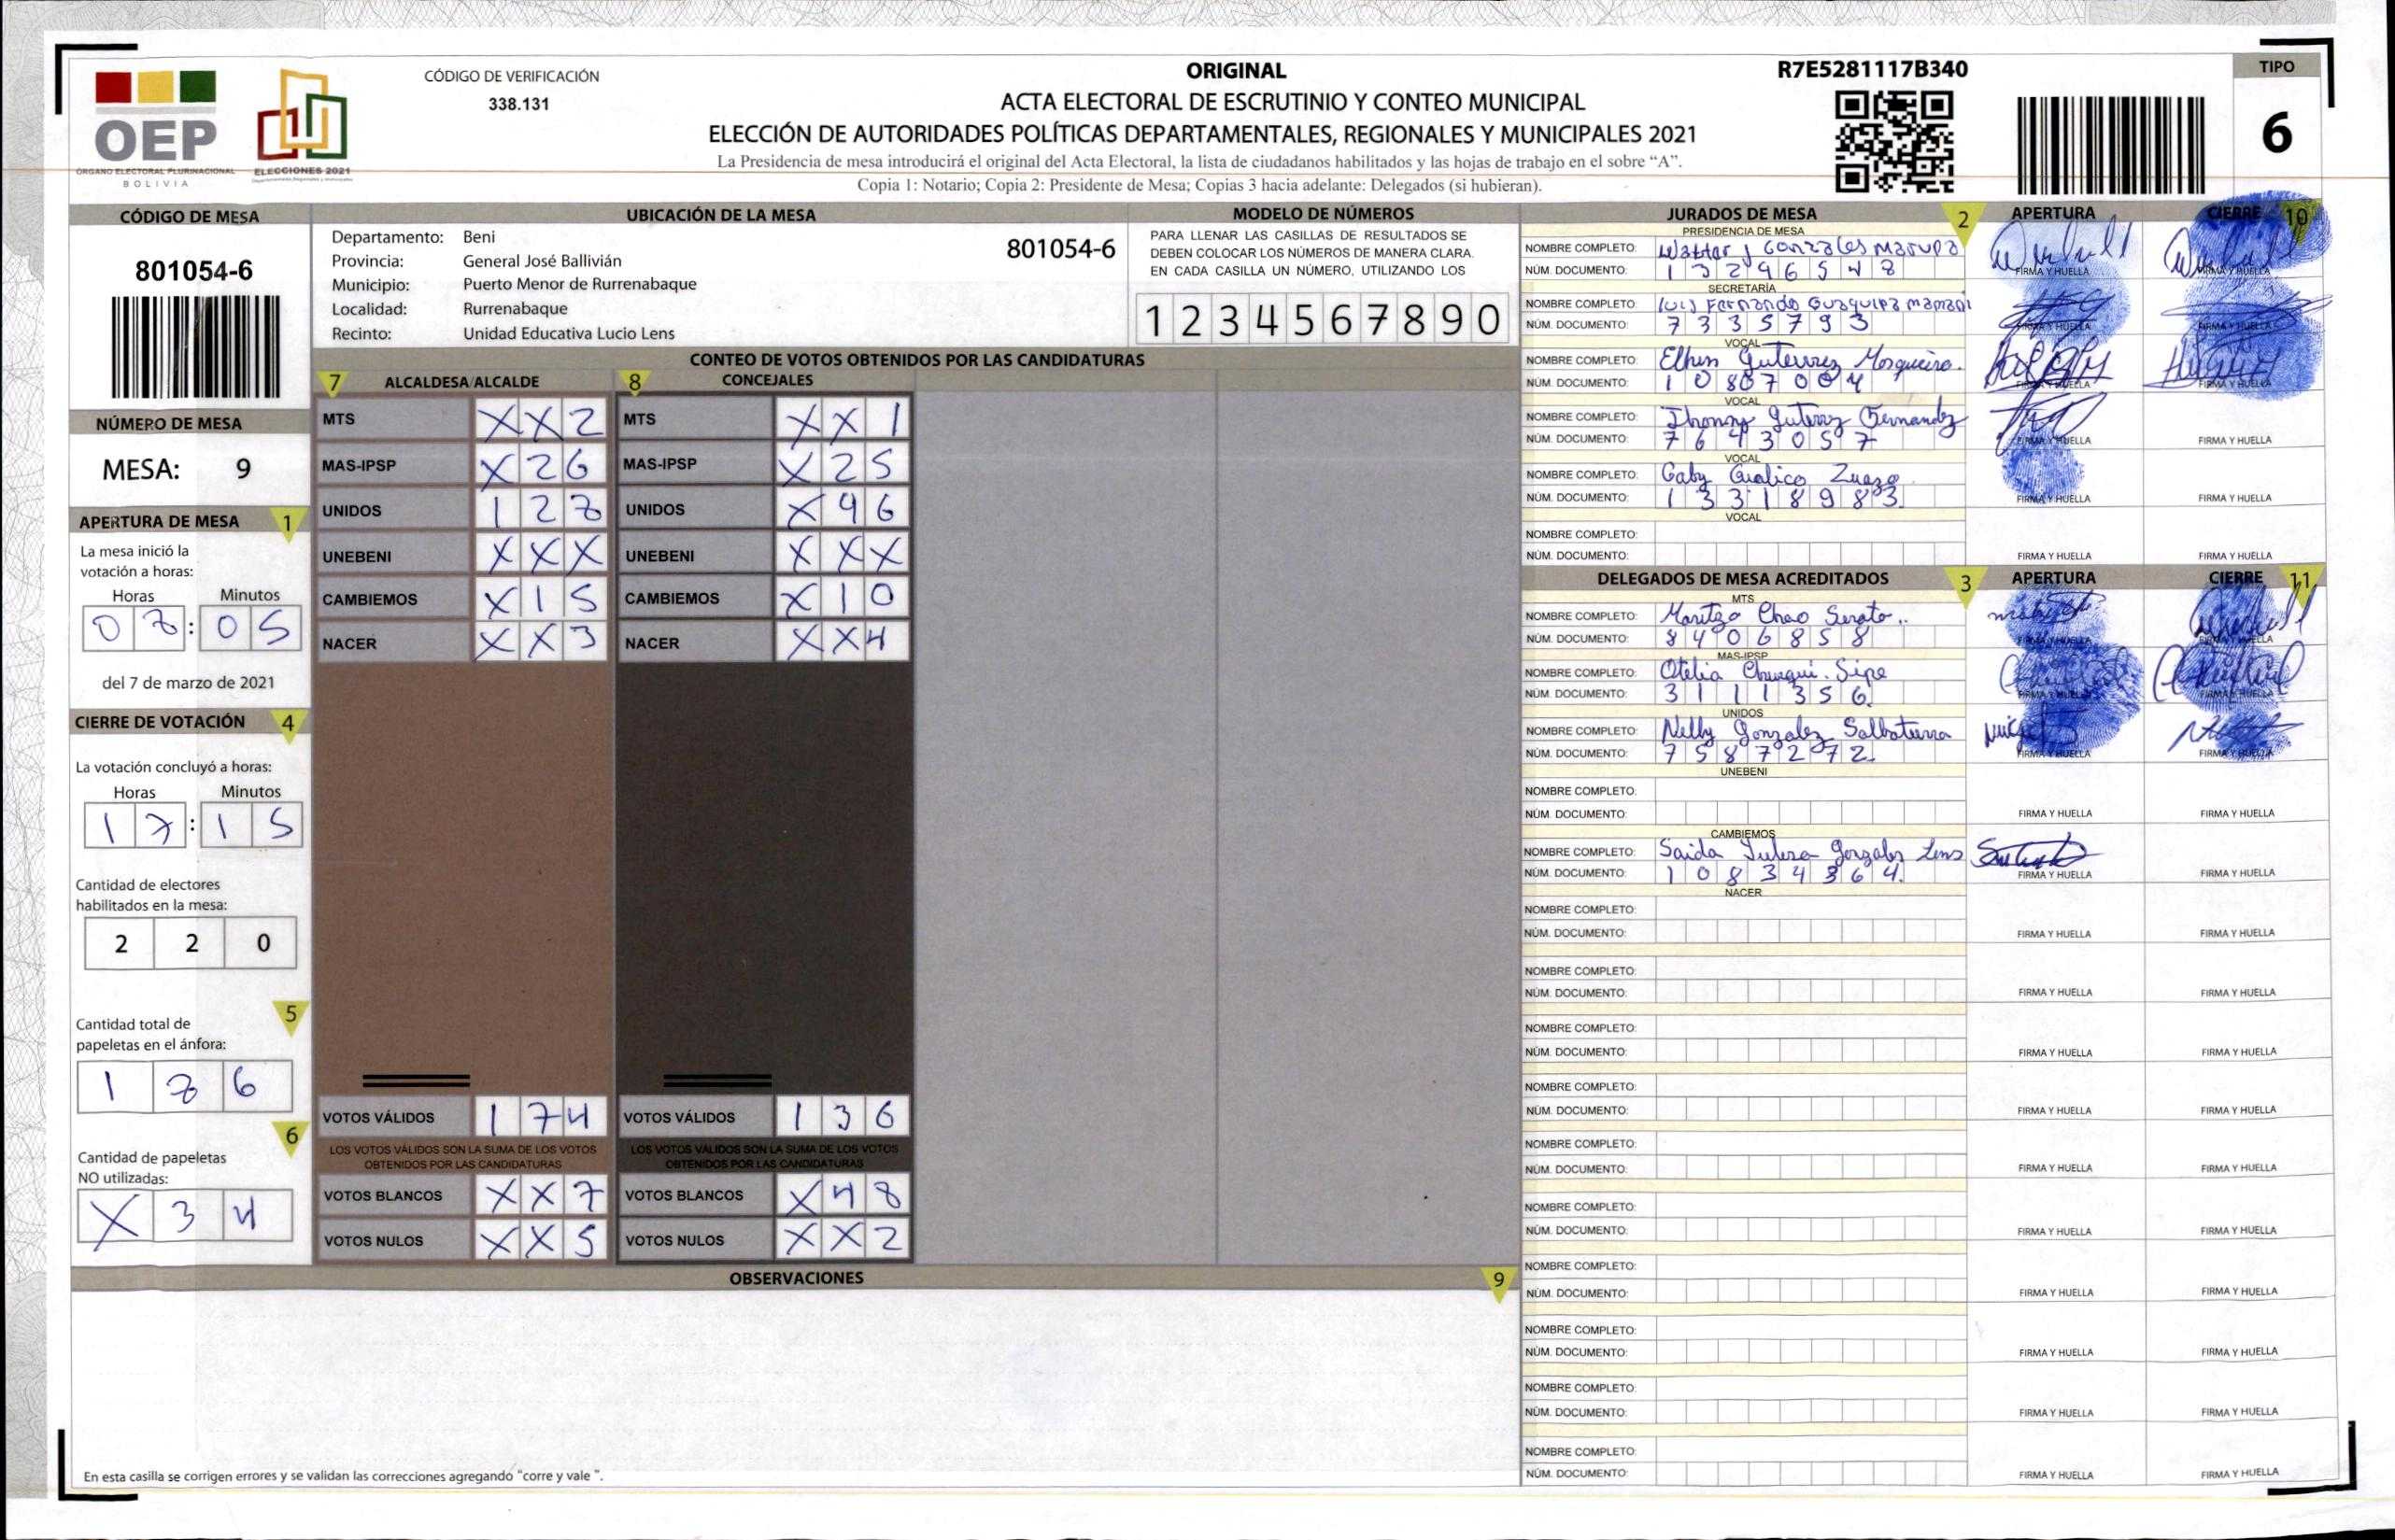 CÓDIGO DE VERIFICACIÓN
338.131
OEP
ÓRGANO ELECTORAL PLURINACIONAL
BOLIVIA
ELECCIONES 2021
ORIGINAL
ACTA ELECTORAL DE ESCRUTINIO Y CONTEO MUNICIPAL
ELECCIÓN DE AUTORIDADES POLÍTICAS DEPARTAMENTALES, REGIONALES Y MUNICIPALES 2021
La Presidencia de mesa introducirá el original del Acta Electoral, la lista de ciudadanos habilitados y las hojas de trabajo en el sobre “A”.
Copia 1: Notario; Copia 2: Presidente de Mesa; Copias 3 hacia adelante: Delegados (si hubieran).
R7E5281117B340
TIPO
6
CÓDIGO DE MESA
801054-6
NÚMERO DE MESA
MESA: 9
APERTURA DE MESA 1
La mesa inició la
votación a horas:
Horas Minutos
07:05
del 7 de marzo de 2021
CIERRE DE VOTACIÓN 4
La votación concluyó a horas:
Horas Minutos
17:15
Cantidad de electores
habilitados en la mesa:
2 2 0
5
Cantidad total de
papeletas en el ánfora:
1 8 6
6
Cantidad de papeletas
NO utilizadas:
X 3 4
UBICACIÓN DE LA MESA
Departamento: Beni
Provincia: General José Ballivián
Municipio: Puerto Menor de Rurrenabaque
Localidad: Rurrenabaque
Recinto: Unidad Educativa Lucio Lens
801054-6
MODELO DE NÚMEROS
PARA LLENAR LAS CASILLAS DE RESULTADOS SE
DEBEN COLOCAR LOS NÚMEROS DE MANERA CLARA.
EN CADA CASILLA UN NÚMERO, UTILIZANDO LOS
1 2 3 4 5 6 7 8 9 0
CONTEO DE VOTOS OBTENIDOS POR LAS CANDIDATURAS
7 ALCALDESA/ALCALDE 8 CONCEJALES
MTS X X 2 MTS X X 1
MAS-IPSP X 2 6 MAS-IPSP X 2 5
UNIDOS 1 2 8 UNIDOS X 9 6
UNEBENI X X X UNEBENI X X X
CAMBIEMOS X 1 5 CAMBIEMOS X 1 0
NACER X X 3 NACER X X 4
VOTOS VÁLIDOS 1 7 4 VOTOS VÁLIDOS 1 3 6
LOS VOTOS VÁLIDOS SON LA SUMA DE LOS VOTOS LOS VOTOS VÁLIDOS SON LA SUMA DE LOS VOTOS
OBTENIDOS POR LAS CANDIDATURAS OBTENIDOS POR LAS CANDIDATURAS
VOTOS BLANCOS X X 7 VOTOS BLANCOS X 4 8
VOTOS NULOS X X 5 VOTOS NULOS X X 2
OBSERVACIONES 9
En esta casilla se corrigen errores y se validan las correcciones agregando "corre y vale ".
JURADOS DE MESA 2 APERTURA CIERRE 10
PRESIDENCIA DE MESA
NOMBRE COMPLETO: Gonzales
NÚM. DOCUMENTO: 1 3 2 9 6 5 4 8 FIRMA Y HUELLA FIRMA Y HUELLA
SECRETARÍA
NOMBRE COMPLETO: Luis Fernando Mamani
NÚM. DOCUMENTO: 7 3 3 5 7 9 3 FIRMA Y HUELLA FIRMA Y HUELLA
VOCAL
NOMBRE COMPLETO: Gutierrez Mosqueiro.
NÚM. DOCUMENTO: FIRMA Y HUELLA FIRMA Y HUELLA
VOCAL
NOMBRE COMPLETO: Jhonny
NÚM. DOCUMENTO: 7 6 4 3 0 5 7 FIRMA Y HUELLA FIRMA Y HUELLA
VOCAL
NOMBRE COMPLETO: Gaby Gualico Zuazo
NÚM. DOCUMENTO: 1 3 3 1 8 9 8 3 FIRMA Y HUELLA FIRMA Y HUELLA
VOCAL
NOMBRE COMPLETO:
NÚM. DOCUMENTO: FIRMA Y HUELLA FIRMA Y HUELLA
DELEGADOS DE MESA ACREDITADOS 3 APERTURA CIERRE 11
MTS
NOMBRE COMPLETO: Maritza Chao Serato..
NÚM. DOCUMENTO: 8 4 0 6 8 5 8 FIRMA Y HUELLA FIRMA Y HUELLA
MAS-IPSP
NOMBRE COMPLETO: Otelia Churqui. Sipe
NÚM. DOCUMENTO: 3 1 1 1 3 5 6. FIRMA Y HUELLA FIRMA Y HUELLA
UNIDOS
NOMBRE COMPLETO: Nelly Gonzalez Salbatierra
NÚM. DOCUMENTO: 7 5 8 7 2 7 2. FIRMA Y HUELLA FIRMA Y HUELLA
UNEBENI
NOMBRE COMPLETO:
NÚM. DOCUMENTO: FIRMA Y HUELLA FIRMA Y HUELLA
CAMBIEMOS
NOMBRE COMPLETO: Saida Gonzales Lens
NÚM. DOCUMENTO: 1 0 8 3 4 3 6 4. FIRMA Y HUELLA FIRMA Y HUELLA
NACER
NOMBRE COMPLETO:
NÚM. DOCUMENTO: FIRMA Y HUELLA FIRMA Y HUELLA
NOMBRE COMPLETO:
NÚM. DOCUMENTO: FIRMA Y HUELLA FIRMA Y HUELLA
NOMBRE COMPLETO:
NÚM. DOCUMENTO: FIRMA Y HUELLA FIRMA Y HUELLA
NOMBRE COMPLETO:
NÚM. DOCUMENTO: FIRMA Y HUELLA FIRMA Y HUELLA
NOMBRE COMPLETO:
NÚM. DOCUMENTO: FIRMA Y HUELLA FIRMA Y HUELLA
NOMBRE COMPLETO:
NÚM. DOCUMENTO: FIRMA Y HUELLA FIRMA Y HUELLA
NOMBRE COMPLETO:
NÚM. DOCUMENTO: FIRMA Y HUELLA FIRMA Y HUELLA
NOMBRE COMPLETO:
NÚM. DOCUMENTO: FIRMA Y HUELLA FIRMA Y HUELLA
NOMBRE COMPLETO:
NÚM. DOCUMENTO: FIRMA Y HUELLA FIRMA Y HUELLA
NOMBRE COMPLETO:
NÚM. DOCUMENTO: FIRMA Y HUELLA FIRMA Y HUELLA